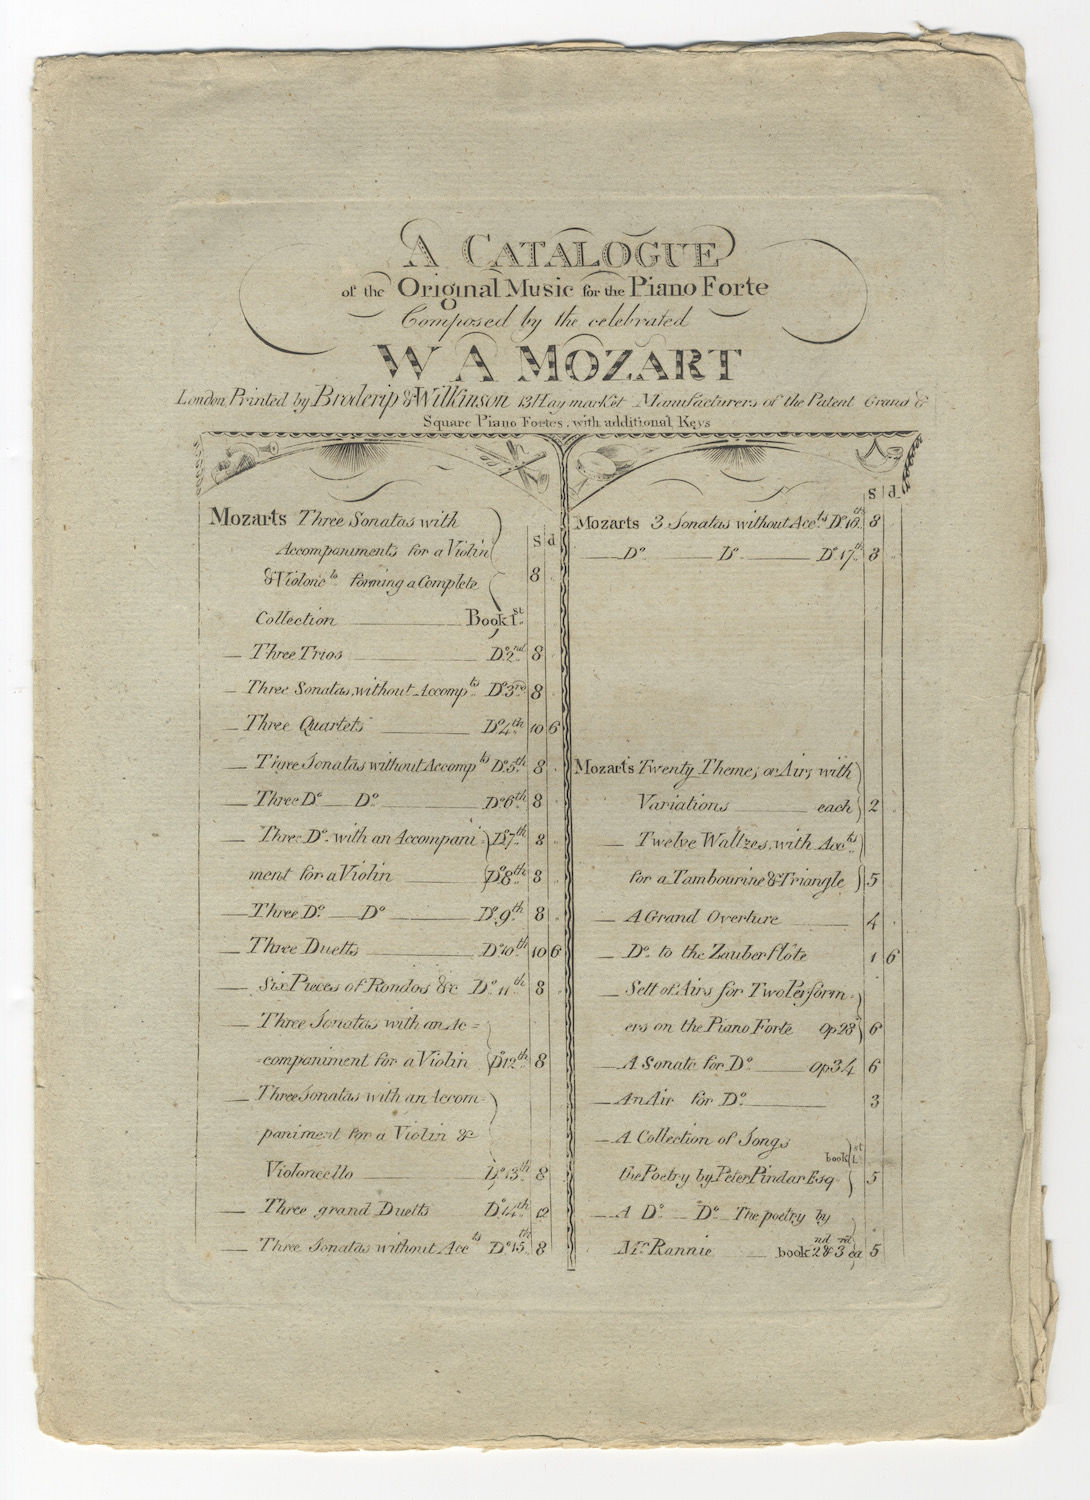 A CATALOGUE
of the Original Music for the Piano Forte
Composed by the celebrated
W A MOZART
London, Printed by Broderip & Wilkinson 13 Haymarket Manufacturers of the Patent Grand &
Square Piano Fortes, with additional Keys
S d
Mozarts Three Sonatas with
Accompaniments for a Violin
& Violonc.lo forming a Complete 8
Collection Book 1.st
Three Trios D.o 2.nd 8
Three Sonatas, without Accomp.ts D.o 3.rd 8
Three Quartets D.o 4.th 10 6
Three Sonatas without Accomp.ts D.o 5.th 8
Three D.o D.o D.o 6.th 8
Three D.o with an Accompani D.o 7.th 8
ment for a Violin D.o 8.th 8
Three D.o D.o D.o 9.th 8
Three Duetts D.o 10.th 10 6
Six Pieces of Rondos &c D.o 11.th 8
Three Sonatas with an Ac=
=companiment for a Violin D.o 12.th 8
Three Sonatas with an Accom-
paniment for a Violin &
Violoncello D.o 13.th 8
Three grand Duetts D.o 14.th 12
Three Sonatas without Acc.ts D.o 15.th 8
S d
Mozarts 3 Sonatas without Acc.ts D.o 16.th 8
D.o D.o D.o 17.th 8
Mozarts Twenty Themes or Airs with
Variations each 2
Twelve Waltzes, with Acc.ts
for a Tambourine & Triangle 5
A Grand Overture 4
D.o to the Zauberflöte 1 6
Sett of Airs for Two Perform-
ers on the Piano Forte Op 28 6
A Sonata for D.o Op 34 6
An Air for D.o 3
A Collection of Songs
the Poetry by Peter Pindar Esq book 1.st 5
A D.o D.o The poetry by
M.r Rannie book 2.nd & 3.rd ea 5